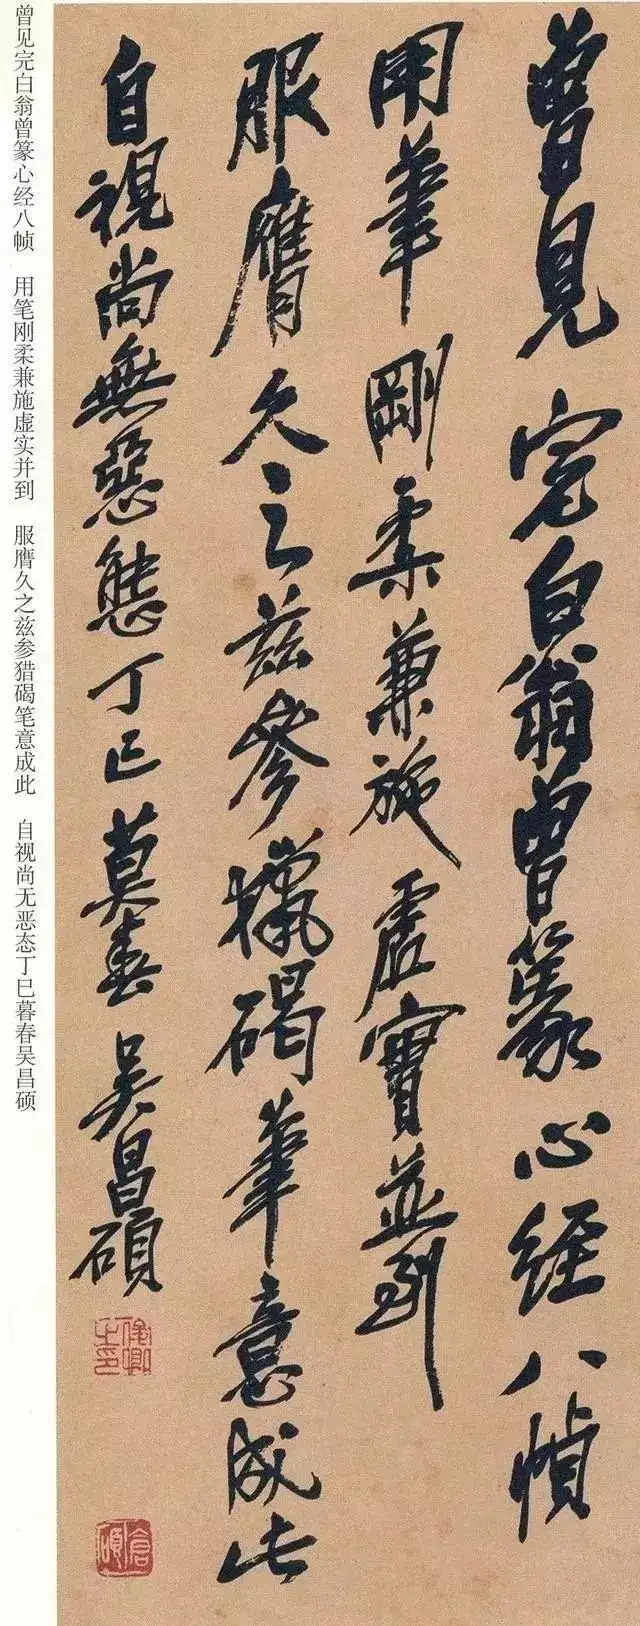 曾見完白翁曾篆心經八幀
用筆剛柔兼施虛實並到
服膺久之兹參獵碣筆意成此
自視尚無惡態丁巳莫春吳昌碩
俊卿之印
倉碩
曾见完白翁曾篆心经八帧 用笔刚柔兼施虚实并到 服膺久之兹参猎碣笔意成此 自视尚无恶态丁巳暮春吴昌硕